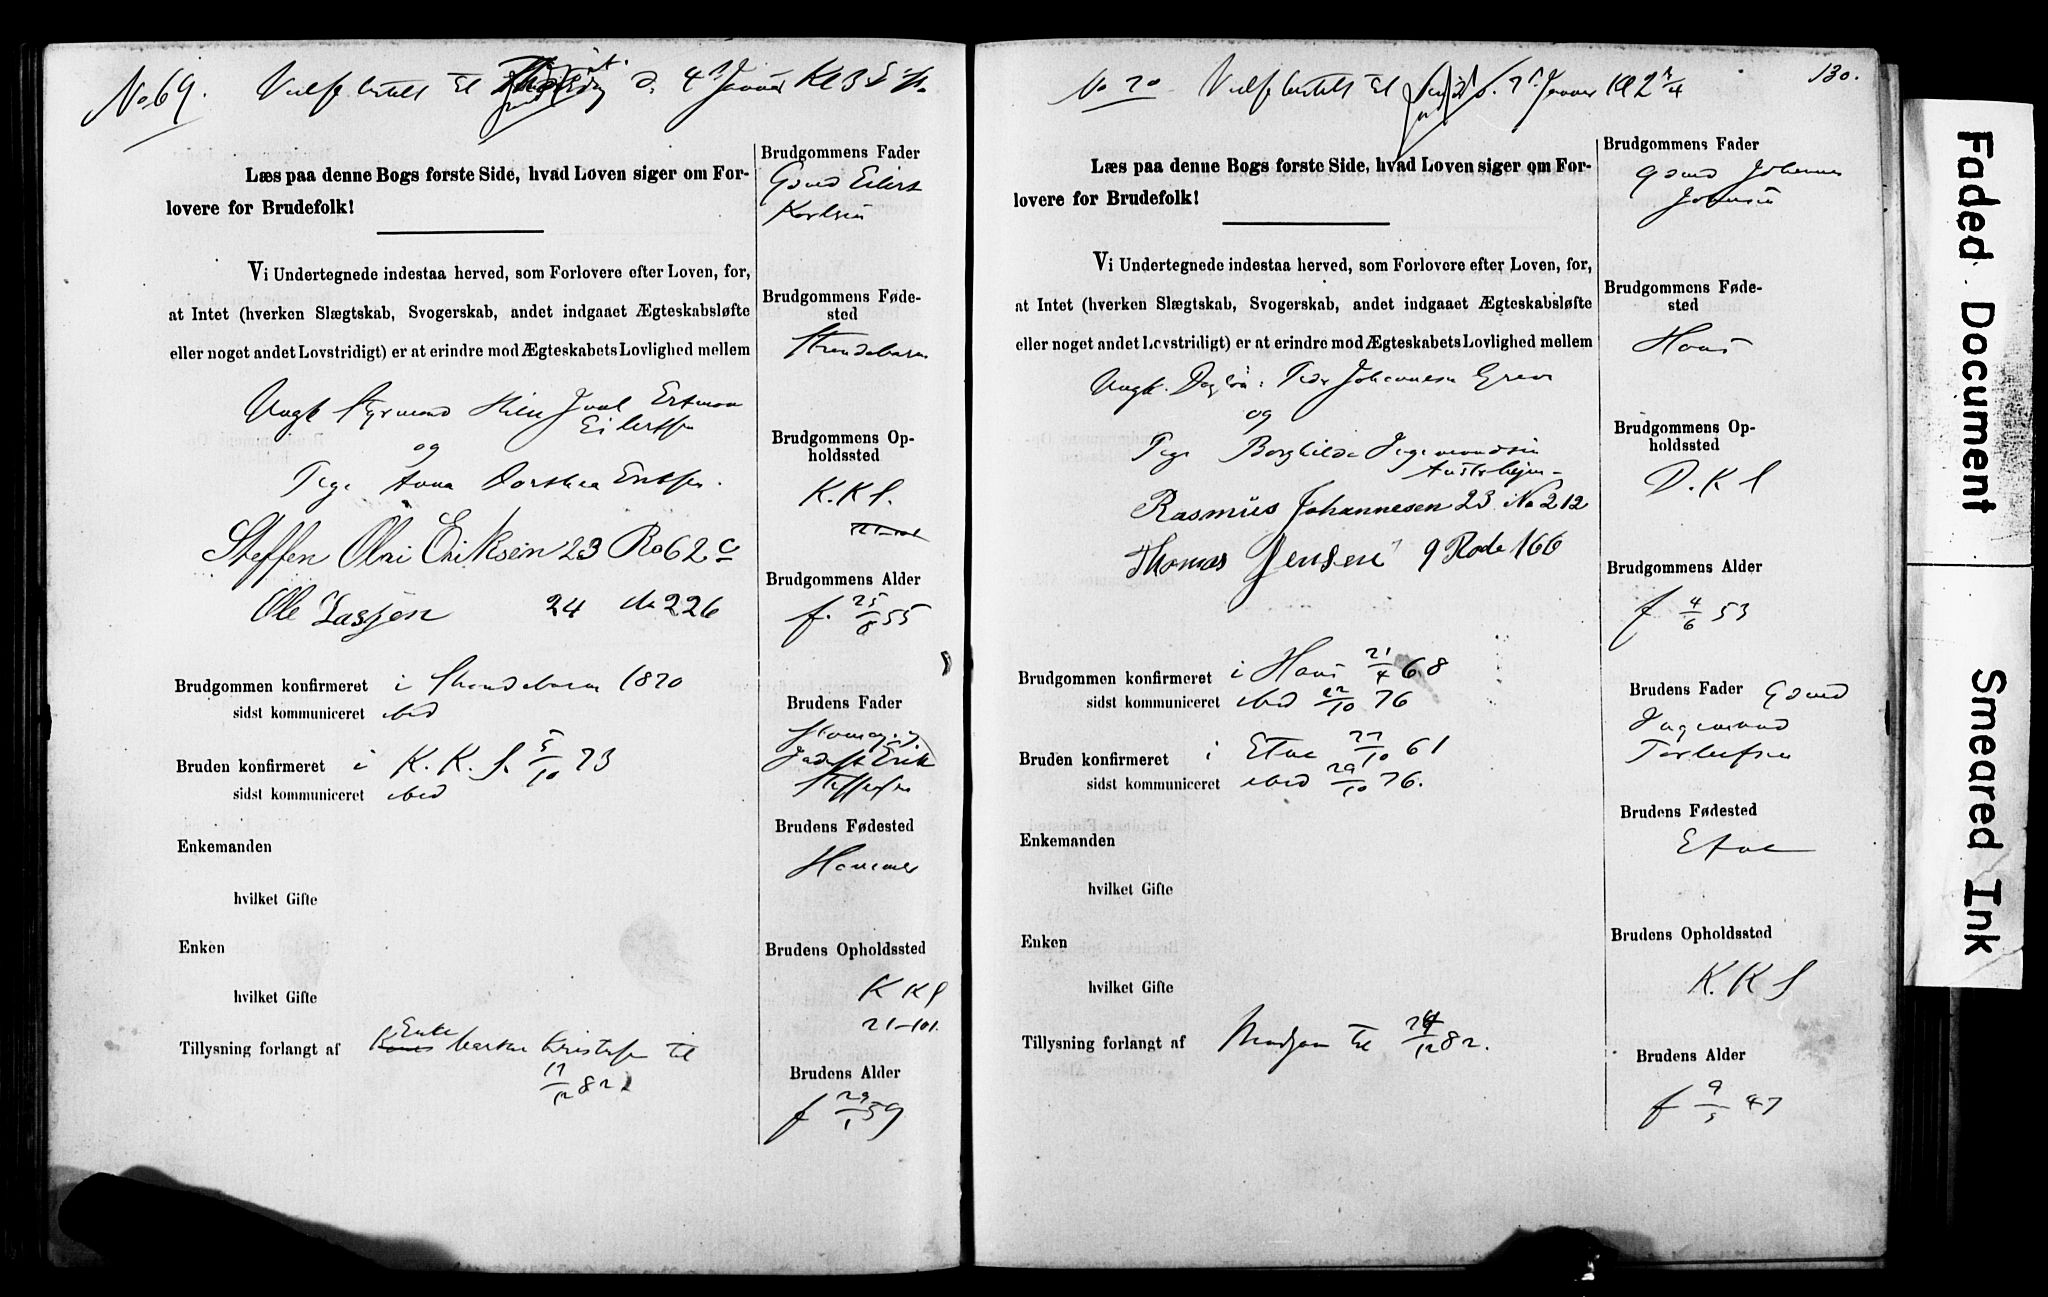 No 69. Vielse bestilt til d. 4de Januar Kl 3
Læs paa denne Bogs første Side, hvad Loven siger om For-
lovere for Brudefolk!
Vi Undertegnede indestaa herved, som Forlovere efter Loven, for,
at Intet (hverken Slægtskab, Svogerskab, andet indgaaet Ægteskabsløfte
eller noget andet Lovstridigt) er at erindre mod Ægteskabets Lovlighed mellem
Ungk Styrmand Joal Ertman
Eilertsen
og
Pige Anna Dorthea Eriksen.
Steffen Olai Eriksen 23 Ro 62 c
Ole Lassen 24 do 226
Brudgommen konfirmeret i Strandebarm 1870
sidst kommuniceret ibid
Bruden konfirmeret i K. K. S. 5/10 73
sidst kommuniceret ibid
Enkemanden
hvilket Gifte
Enken
hvilket Gifte
Tillysning forlangt af Enke Kristofsen til
17/12 82
Brudgommens Fader
Gaard Eilert
Karlsen
Brudgommens Føde-
sted
Strandebarm
Brudgommens Op-
holdssted
K. K. S.
Brudgommens Alder
f. 25/8 55
Brudens Fader
Erik
Steffensen
Brudens Fødested
Hammer
Brudens Opholdssted
K K S
21-101.
Brudens Alder
f 29/1 59
130.
No 70 Vielse bestilt til d. 7de Januar Kl 2 3/4
Læs paa denne Bogs første Side, hvad Loven siger om For-
lovere for Brudefolk!
Vi Undertegnede indestaa herved, som Forlovere efter Loven, for,
at Intet (hverken Slægtskab, Svogerskab, andet indgaaet Ægteskabsløfte
eller noget andet Lovstridigt) er at erindre mod Ægteskabets Lovlighed mellem
Ungk. Peder Johannesen
og
Pige Borghilde Ingemundsen
Rasmus Johannesen 23 No 212
Thomas Jensen 9 Rode 166
Brudgommen konfirmeret i Haus 21/4 68
sidst kommuniceret ibid 22/10 76
Bruden konfirmeret i Etne 27/10 61
sidst kommuniceret ibid 29/10 76.
Enkemanden
hvilket Gifte
Enken
hvilket Gifte
Tillysning forlangt af Brudgom til 24/12 82.
Brudgommens Fader
Gaard Johannes
Johnsen
Brudgommens Føde-
sted
Haus
Brudgommens Op-
holdssted
D. K S
Brudgommens Alder
f 4/6 53
Brudens Fader Gaard
Ingemund
Torleifsen
Brudens Fødested
Etne
Brudens Opholdssted
K. K S
Brudens Alder
f 9/5 47
Faded Document
Smeared Ink